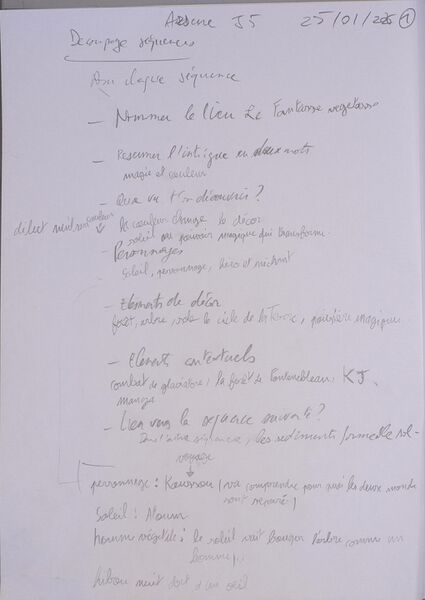 J5 25/01/ 1
Découpage séquences
Pour chaque séquence
- Nommer le lieu Le Fantasse vegetasse
- Resumer l'intrigue en deux mots
magie et couleur
- Que va t'on découvrir ?
début nuit sans couleur la couleur change le décor
soleil au pouvoir magique qui transforme
- Personnages
Soleil, personnage, héro et méchant
- Elements de décor
forêt, arbre, le ciel de la Terre, poussière magique
- Elements contextuels
combat de gladiateur, la forêt de Fontainebleau, KJ.
manga
- Lien vers la séquence suivante ?
les sédiments forme le sol -
voyage
personnage : Koussou (va comprendre pour quoi les deux monde
sont séparé)
Soleil : Aloum
homme végétale : le soleil fait bouger l'arbre comme un
homme
hibou nuit dort d'un oeil